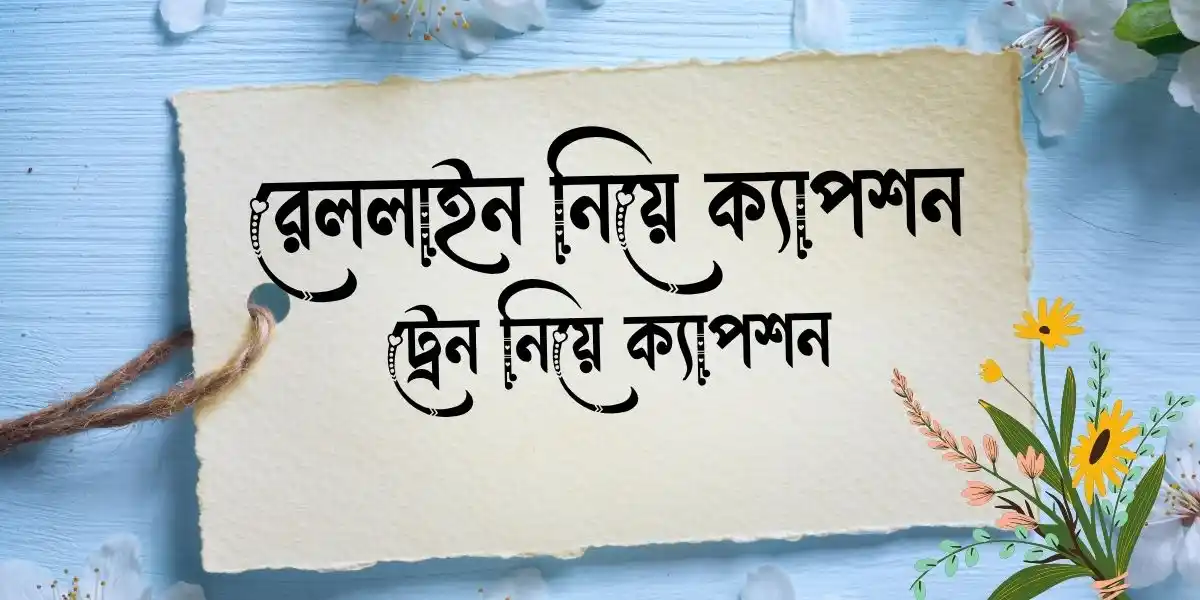 রেললাইন নিয়ে ক্যাপশন
ট্রেন নিয়ে ক্যাপশন